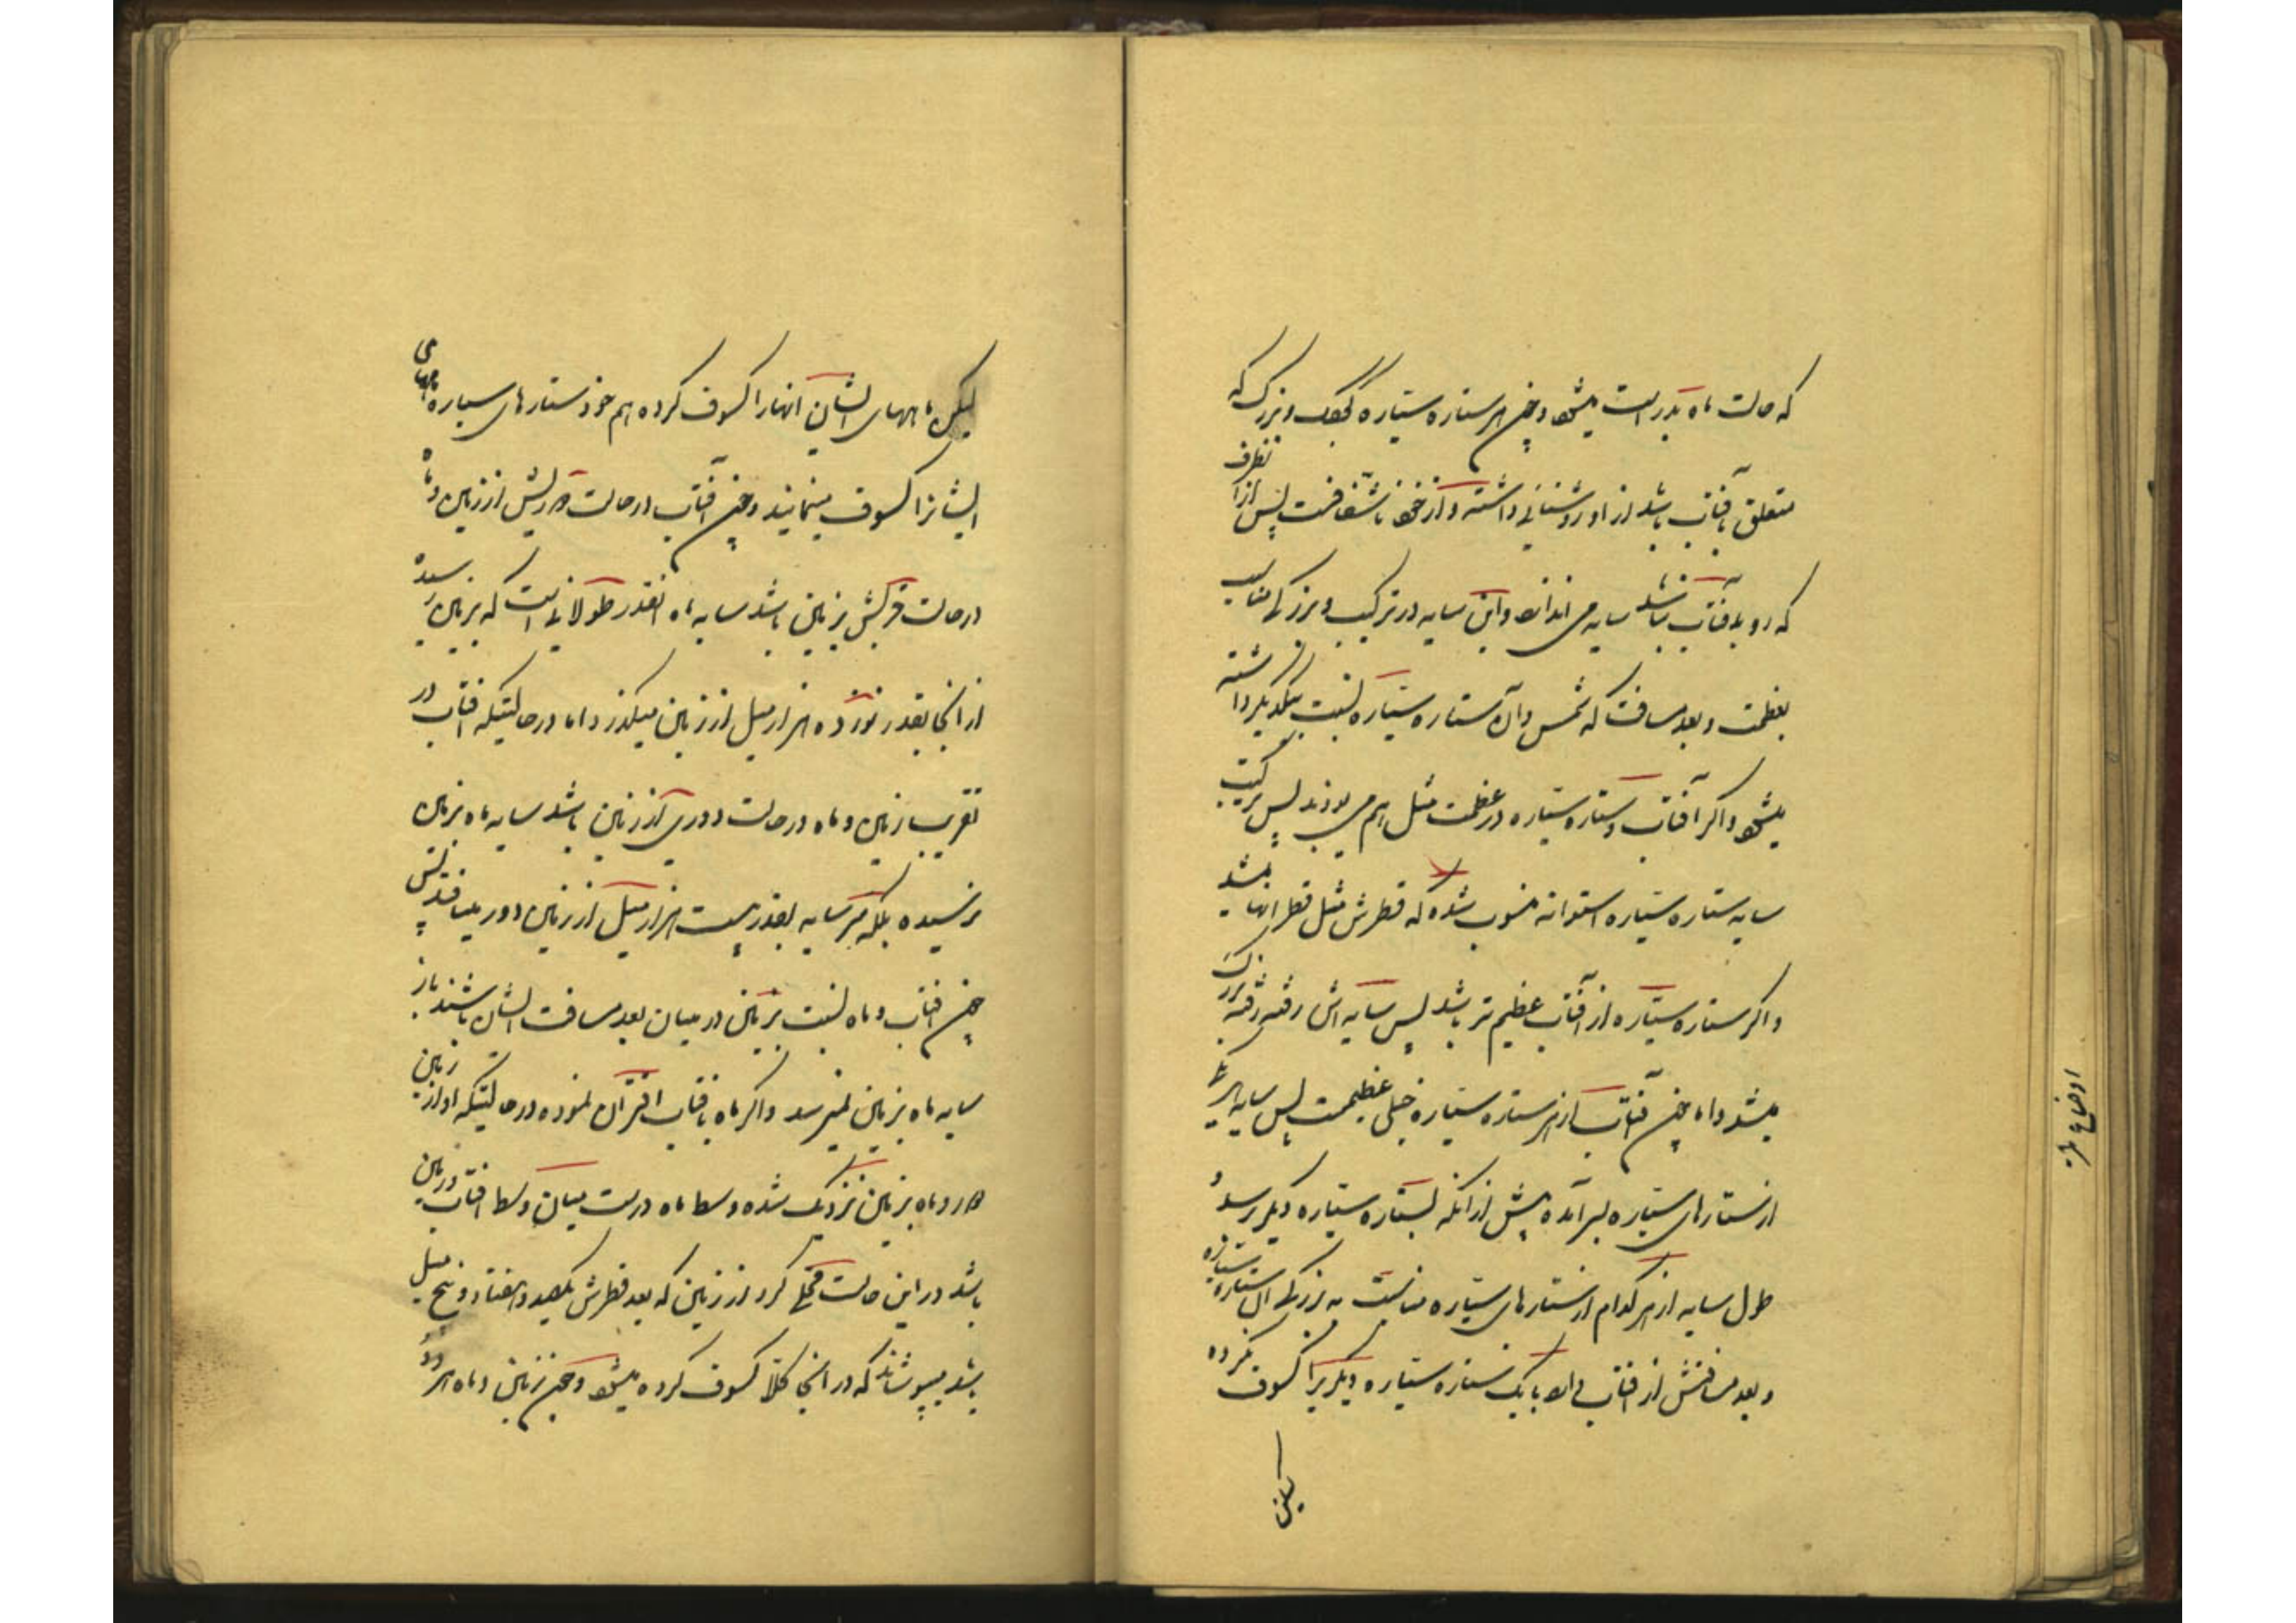 که حالت ماه بدر است میشود و چون هر ستاره سیاره کوچک و بزرگ که
متعلق بآفتاب باشد از او روشنائی داشته و از خود ناشفافست پس از انطرف
که رو بآفتاب نباشد سایه می اندازد و این سایه در ترکیب و بزرگی مناسب
بعظمت و بعد مسافت که شمس و آن ستاره سیاره نسبت بیکدیگر داشته
میشود و اگر آفتاب و ستاره سیاره در عظمت مثل هم می بودند پس ترکیب
سایه ستاره سیاره استوانه منسوب شده که قطرش مثل قطر آنها میشد
و اگر ستاره سیاره از آفتاب عظیم تر باشد پس سایه اش رفته رفته بزرگ
میشد و اما چون آفتاب از هر ستاره سیاره خیلی عظیمست پس سایه هر یک
از ستارهای سیاره بسر آمده پیش از انکه بستاره سیاره دیگر رسد و
طول سایه از هر کدام از ستارهای سیاره مناسبت به بزرگی آن ستاره سیاره
و بعد مسافتش از افتاب دارد یا یک ستاره سیاره دیگر یرا کسوف نکرده
لیکن
اوضاع
لیکن ماههای ایشان آنهارا کسوف کرده هم خود ستارهای سیاره ماههای
ایشانرا کسوف مینمایند و چون آفتاب در حالت دوریش از زمین و ماه
در حالت قربش بزمین باشد سایه ماه انقدر طولانی است که بزمین رسیده
از انجا بقدر نوزده هزار میل از زمین میگذرد اما در حالتیکه افتاب در
تقرب زمین و ماه در حالت دوری از زمین باشد سایه ماه بزمین
نرسیده بلکه سر سایه بقدر بیست هزار میل از زمین دور میافتد پس
چون افتاب و ماه نسبت بزمین در میان بعد مسافت ایشان باشند باز
سایه ماه بزمین نمیرسد و اگر ماه بافتاب اقتران نموده در حالتیکه او از زمین
دور و ماه بزمین نزدیک شده وسط ماه درست میان وسط افتاب و زمین
باشد در این حالت محلی گرد از زمین که بعد قطرش یکصد و هفتاد و پنج میل
باشد میپوشاند که در انجا کلا کسوف کرده میشود و چون زمین و ماه هر دو